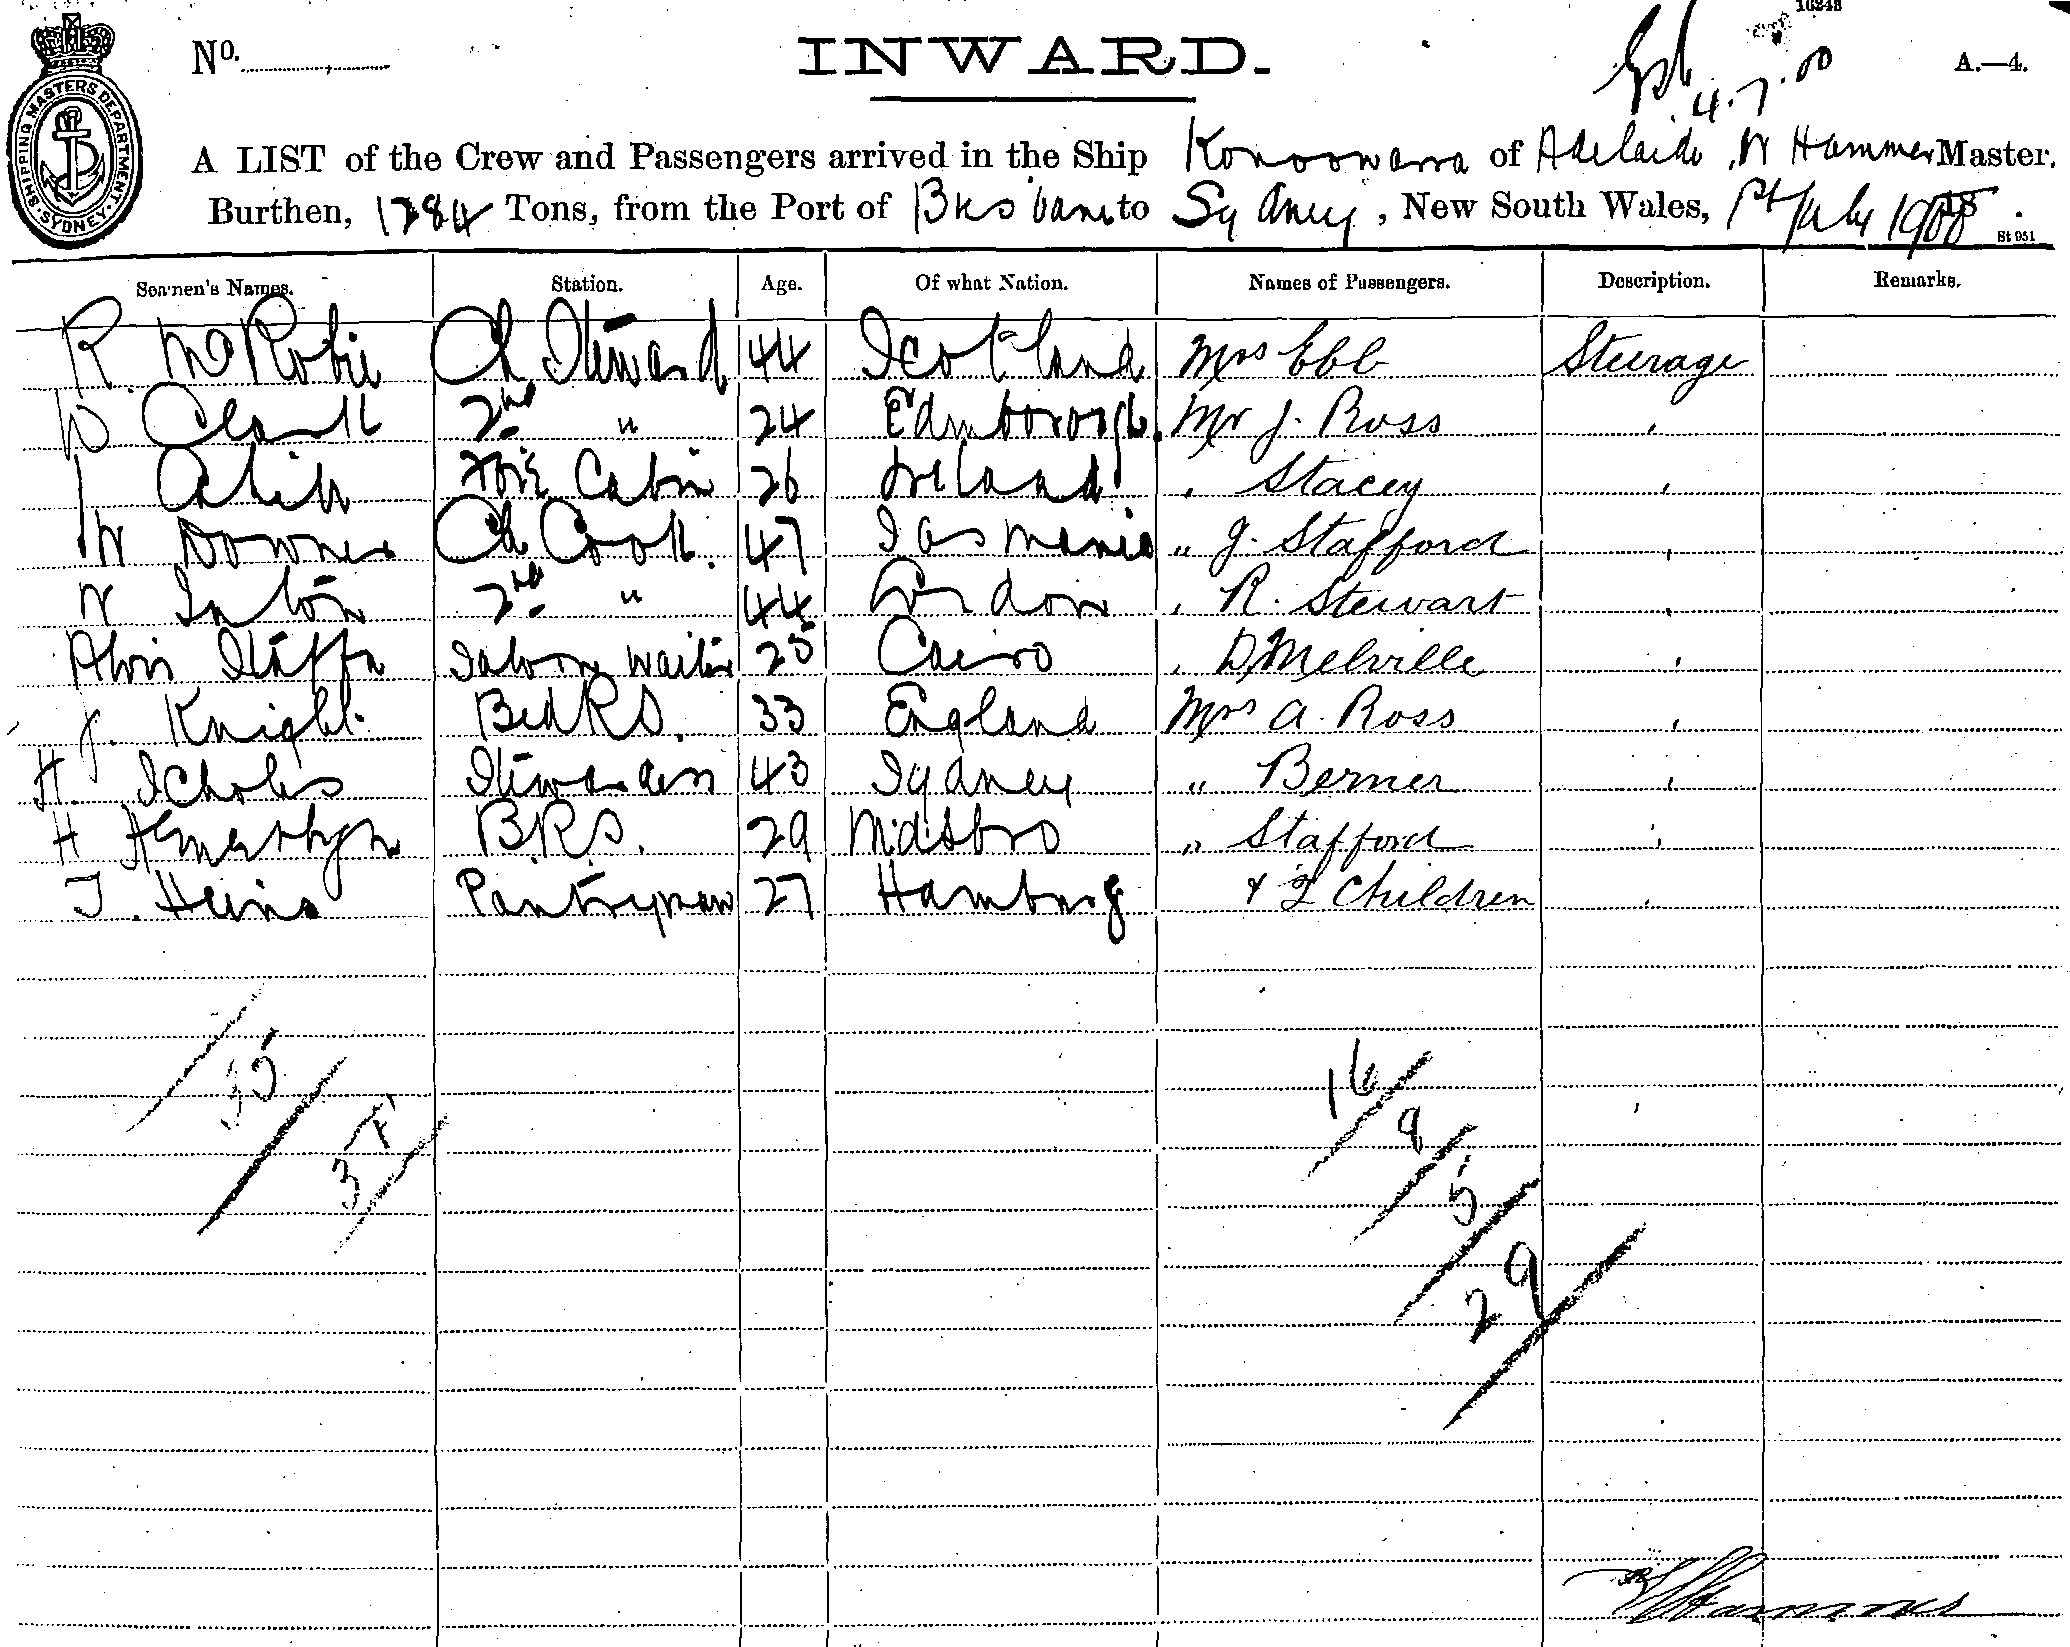 10248
No.
INWARD.
4.7.00
A.—4.
SHIPPING MASTERS DEPARTMENT. SYDNEY.
A LIST of the Crew and Passengers arrived in the Ship Konoowarra of Adelaide, W Hammer Master.
Burthen, 1284 Tons, from the Port of Brisbane to Sydney, New South Wales, 1st July 1900.
St 951
Seamen's Names. Station. Age. Of what Nation. Names of Passengers. Description. Remarks.
R. McRobie Ch. Steward 44 Scotland Mrs Ebb Steerage
D Clark 2nd " 24 Edinborough. Mr J. Ross "
J Cahill Fore Cabin 26 Ireland " Stacey "
W Downes Ch Cook. 47 Tasmania " J. Stafford "
W 2nd " 44 London " R. Stewart "
Staffa Saloon Waiter 25 Cairo " D. Melville "
J. Knight Bed R S. 33 England Mrs A. Ross "
H. Scholes Stewardess 43 Sydney " Berner "
H B.R.S. 29 Midsbro " Stafford "
T. Heins Pantryman 27 Hamburg & 2 Children "
35
16
8
5
29